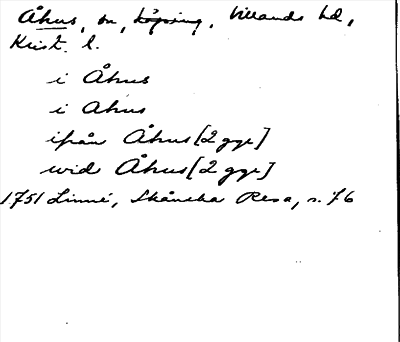 Åhus, sn, köping, Villands hd,
Krist. l.
i Åhus
i Ahus
ifrån Åhus [2 ggr]
wid Åhus [2 ggr]
1751 Linné, Skånska Resa, s. 76